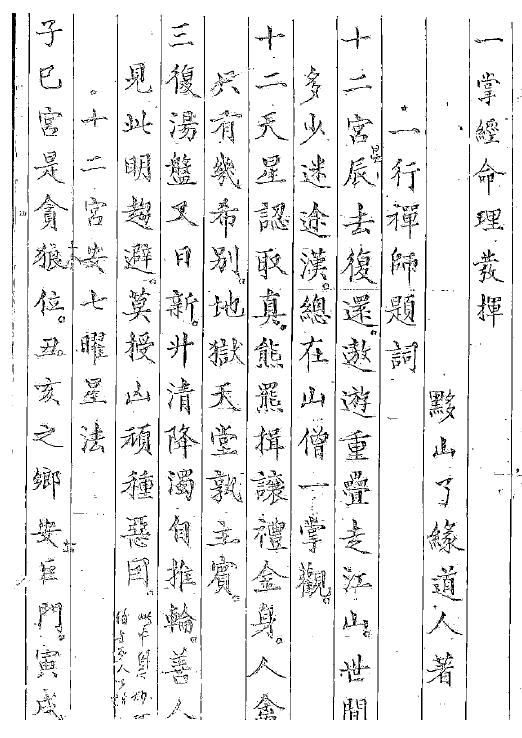 一掌經命理發揮
黟山了緣道人著
一行禪師題詞
十二宮辰去復還。遨遊重疊走江山。世間
星
多少迷途漢。總在山僧一掌觀。
十二天星認取真。熊羆揖讓禮金身。人禽
只有幾希別。地獄天堂孰主賓。
三復湯盤又日新。升清降濁自推輪。善人
見此明趨避。莫授凶頑種惡因。
十二宮安七曜星法
子巳宮是貪狼位。丑亥之鄉安巨門。寅戌